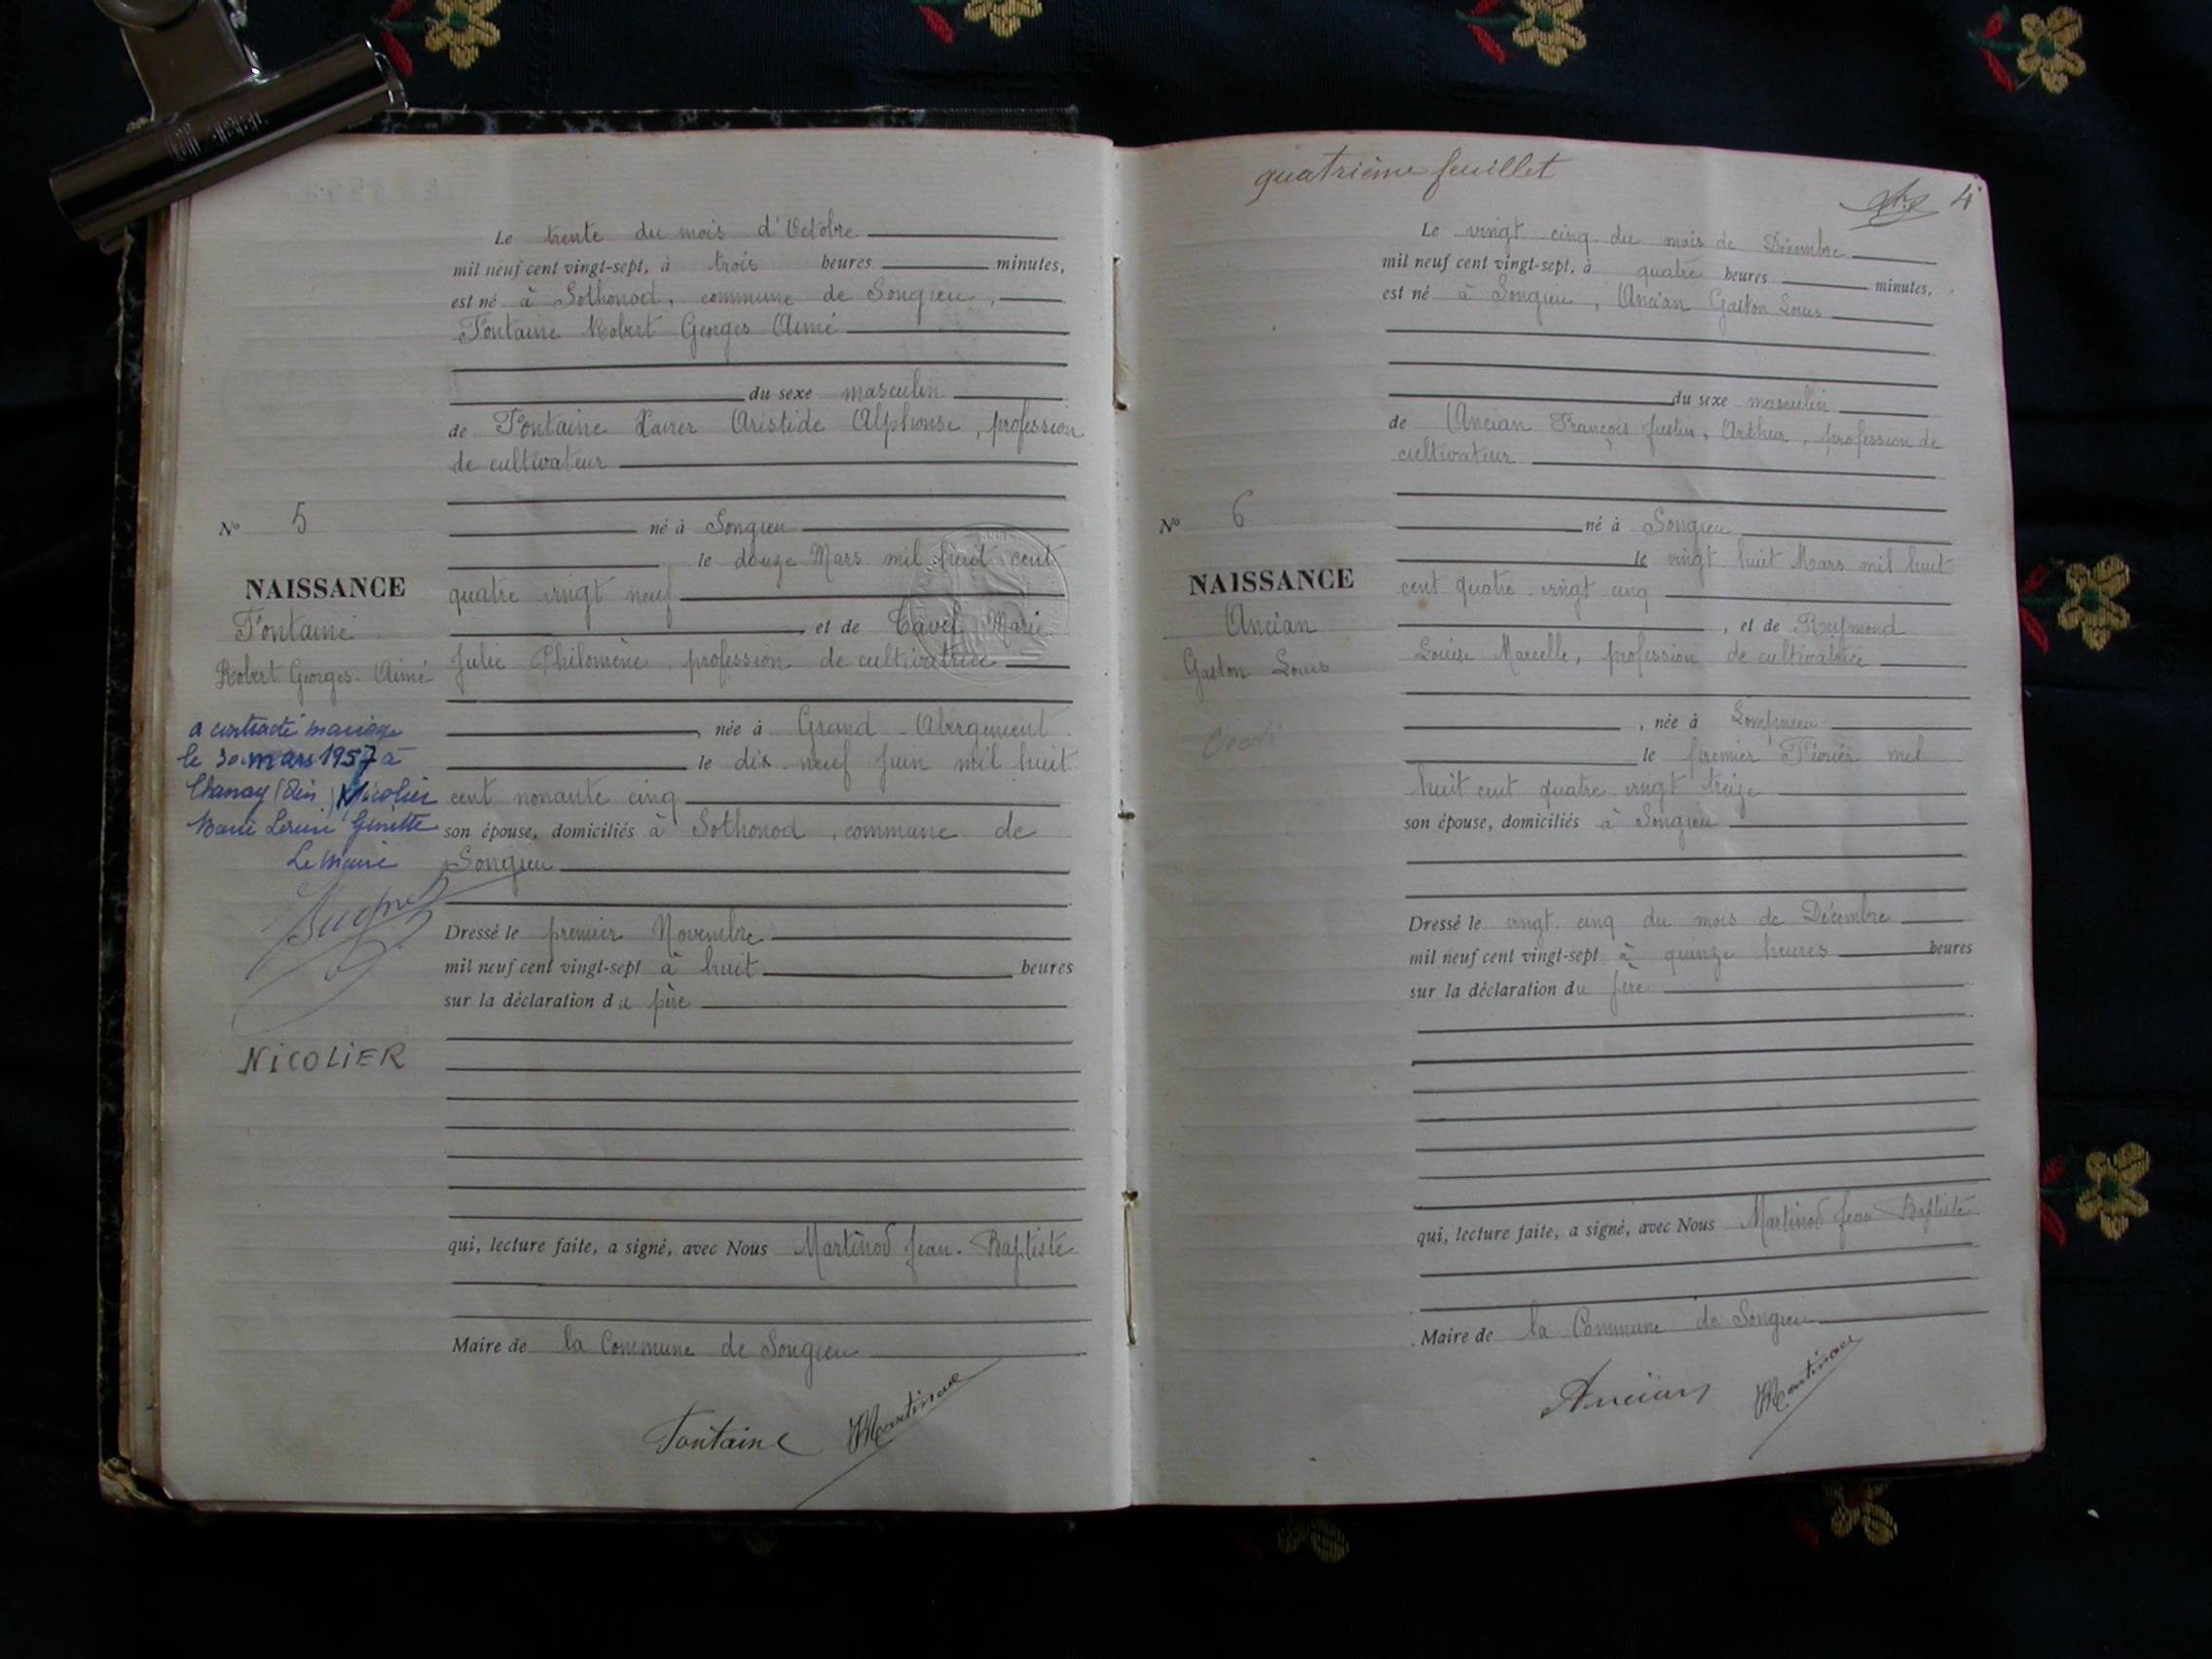 Le trente du mois d'Octobre
mil neuf cent vingt-sept, à trois heures minutes,
est né à Sothonod, commune de Songieu,
Fontaine Robert Georges Aimé
du sexe masculin
de Fontaine Xavier Aristide Alphonse, profession
de cultivateur
N° 5
né à Songieu
le douze Mars mil huit cent
NAISSANCE
quatre vingt neuf
Fontaine
et de Tavel Marie
Robert Georges Aimé
Julie Philomène profession de cultivatrice
a contracté mariage
le 30 mars 1957 à
Chanay (Ain) Nicolier
Marie Genette
Le Maire
née à Grand Abergement
le dix-neuf Juin mil huit
cent nonante cinq
son épouse, domiciliés à Sothonod, commune de
Songieu
Dressé le premier Novembre
mil neuf cent vingt-sept à huit heures
sur la déclaration du père
NICOLIER
qui, lecture faite, a signé, avec Nous Martinod Jean-Baptiste
Maire de la Commune de Songieu
Fontaine Martinod
quatrième feuillet
4
Le vingt cinq du mois de Décembre
mil neuf cent vingt-sept, à quatre heures minutes,
est né à Songieu, Ancian Gaston Louis
du sexe masculin
de Ancian François Justin, Arthur, profession de
cultivateur
N° 6
né à Songieu
le vingt huit Mars mil huit
NAISSANCE
cent quatre-vingt cinq
Ancian
, et de Reymond
Gaston Louis
Louise Marcelle, profession de cultivatrice
, née à Lompnieu
le premier Février mil
huit cent quatre-vingt treize
son épouse, domiciliés à Songieu
Dressé le vingt-cinq du mois de Décembre
mil neuf cent vingt-sept à quinze heures heures
sur la déclaration du père
qui, lecture faite, a signé, avec Nous Martinod Jean-Baptiste
Maire de la Commune de Songieu
Ancian Martinod